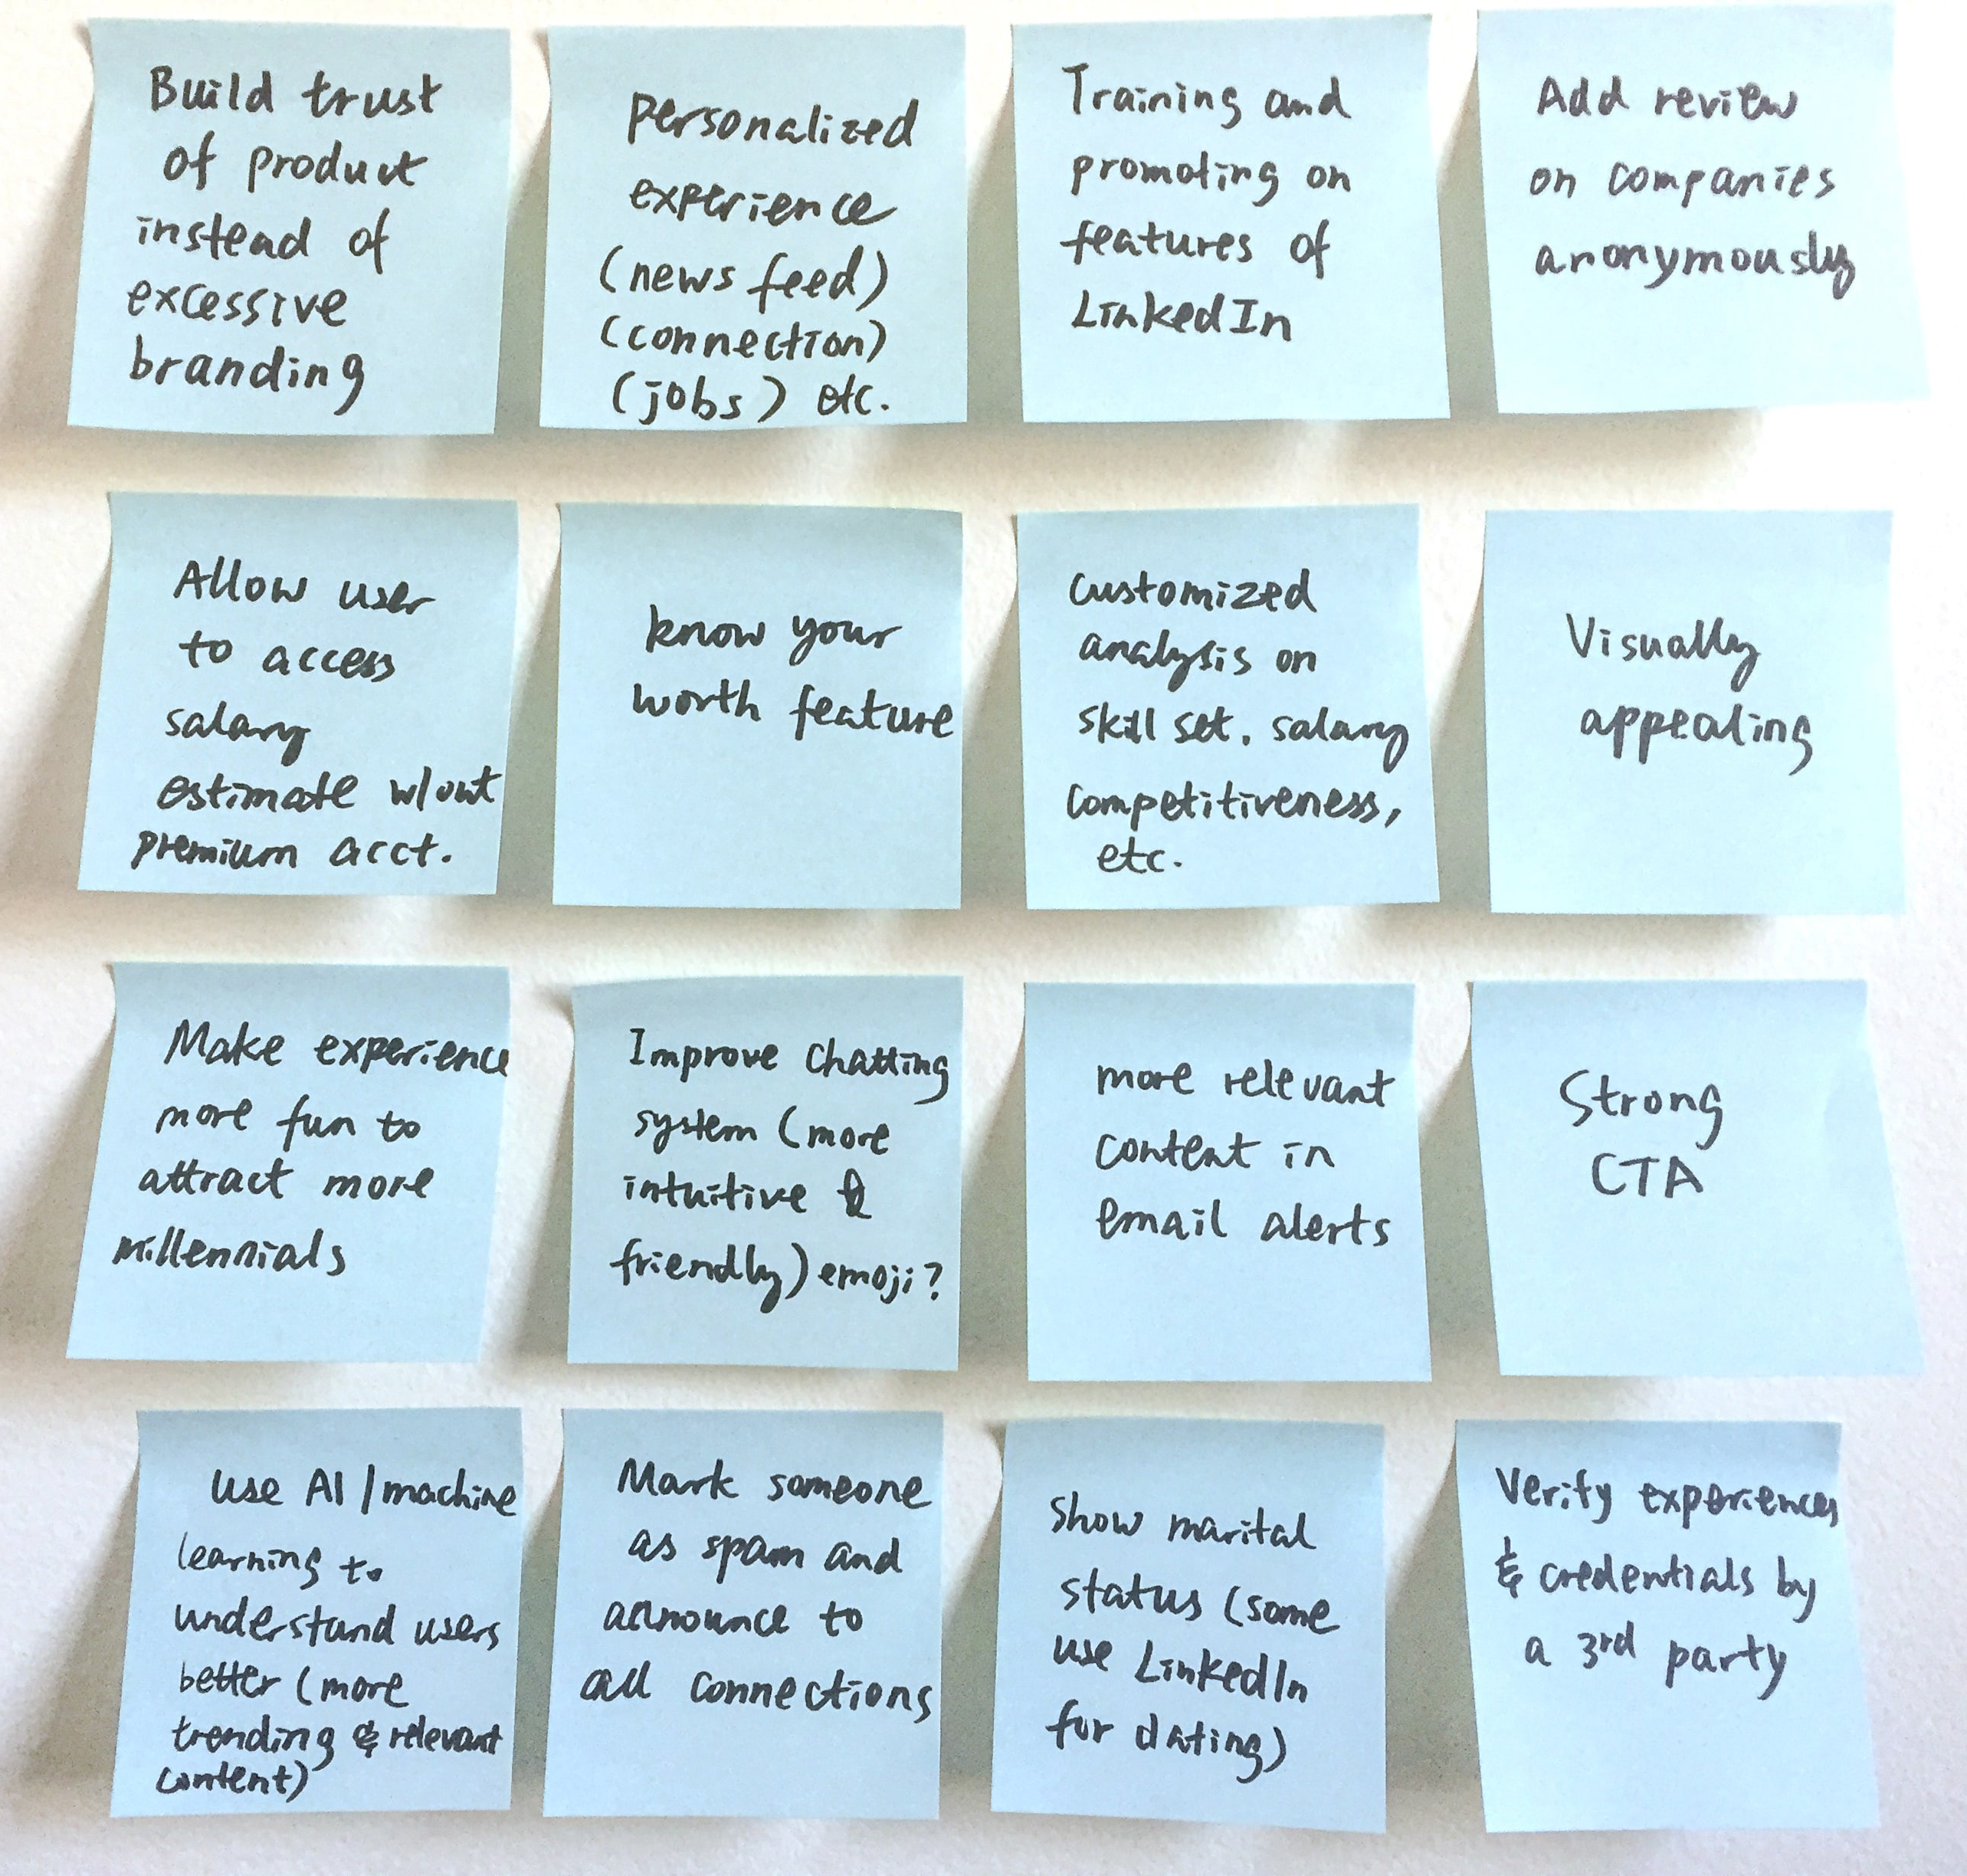 Build trust
of product
instead of
excessive
branding
Personalized
experience
(news feed)
(connection)
(jobs) etc.
Training and
promoting on
features of
LinkedIn
Add review
on companies
anonymously
Allow user
to access
salary
estimate w/out
premium acct.
know your
worth feature
Customized
analysis on
skill set, salary
competitiveness,
etc.
Visually
appealing
Make experience
more fun to
attract more
millennials
Improve chatting
system (more
intuitive &
friendly) emoji?
more relevant
content in
email alerts
Strong
CTA
use AI/machine
learning to
understand users
better (more
trending & relevant
content)
Mark someone
as spam and
announce to
all connections
Show marital
status (some
use LinkedIn
for dating)
Verify experiences
& credentials by
a 3rd party